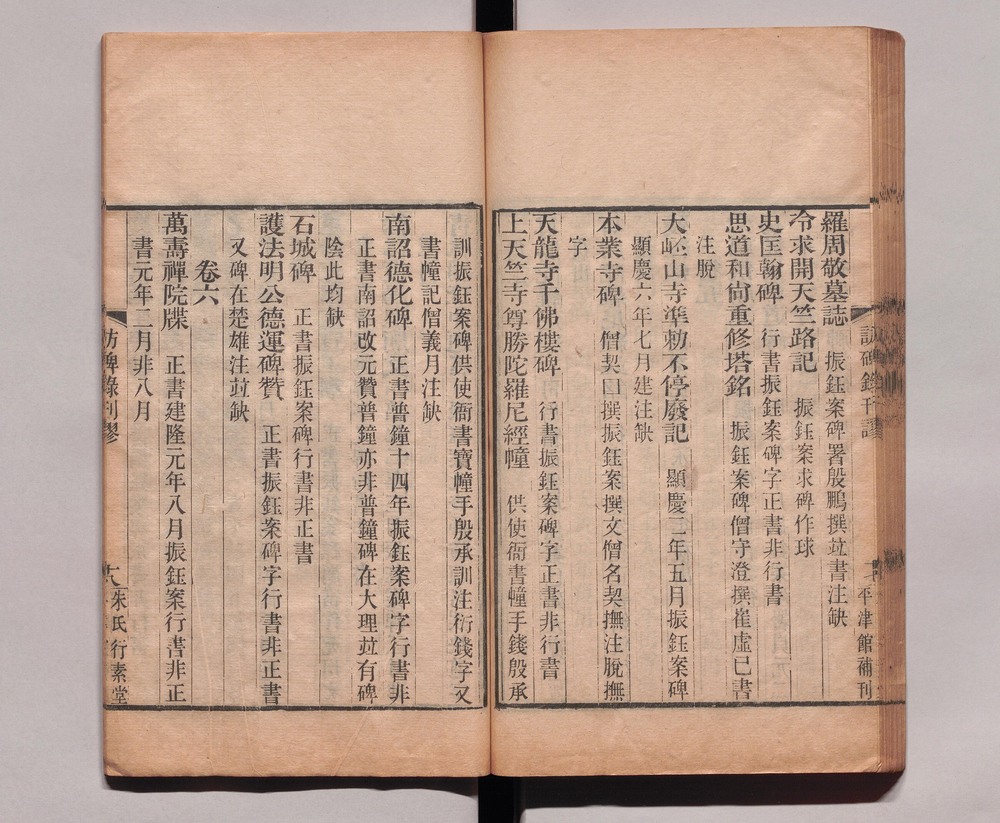 羅周敬墓誌 振鈺案碑署殷鵬撰竝書注缺
冷求開天竺路記 振鈺案求碑作球
史匡翰碑 行書振鈺案碑字正書非行書
思道和尙重修塔銘 振鈺案碑僧守澄撰崔虛已書
注脫
大岯山寺準勅不停廢記 顯慶二年五月振鈺案碑
顯慶六年七月建注缺
本業寺碑 僧契曰撰振鈺案撰文僧名契撫注脫撫
字
天龍寺千佛樓碑 行書振鈺案碑字正書非行書
上天竺寺尊勝陀羅尼經幢 供使衙書幢手錢殷承
訓振鈺案碑供使衙書寶幢手殷承訓注衍錢字又
書幢記僧義月注缺
南詔德化碑 正書普鐘十四年振鈺案碑字行書非
正書南詔改元贊普鐘亦非普鐘碑在大理竝有碑
陰此均缺
石城碑 正書振鈺案碑行書非正書
護法明公德運碑贊 正書振鈺案碑字行書非正書
又碑在楚雄注竝缺
卷六
萬壽禪院牒 正書建隆元年八月振鈺案行書非正
書元年二月非八月
訪碑錄刊謬
平津館補刊
訪碑錄刊謬
朱氏行素堂